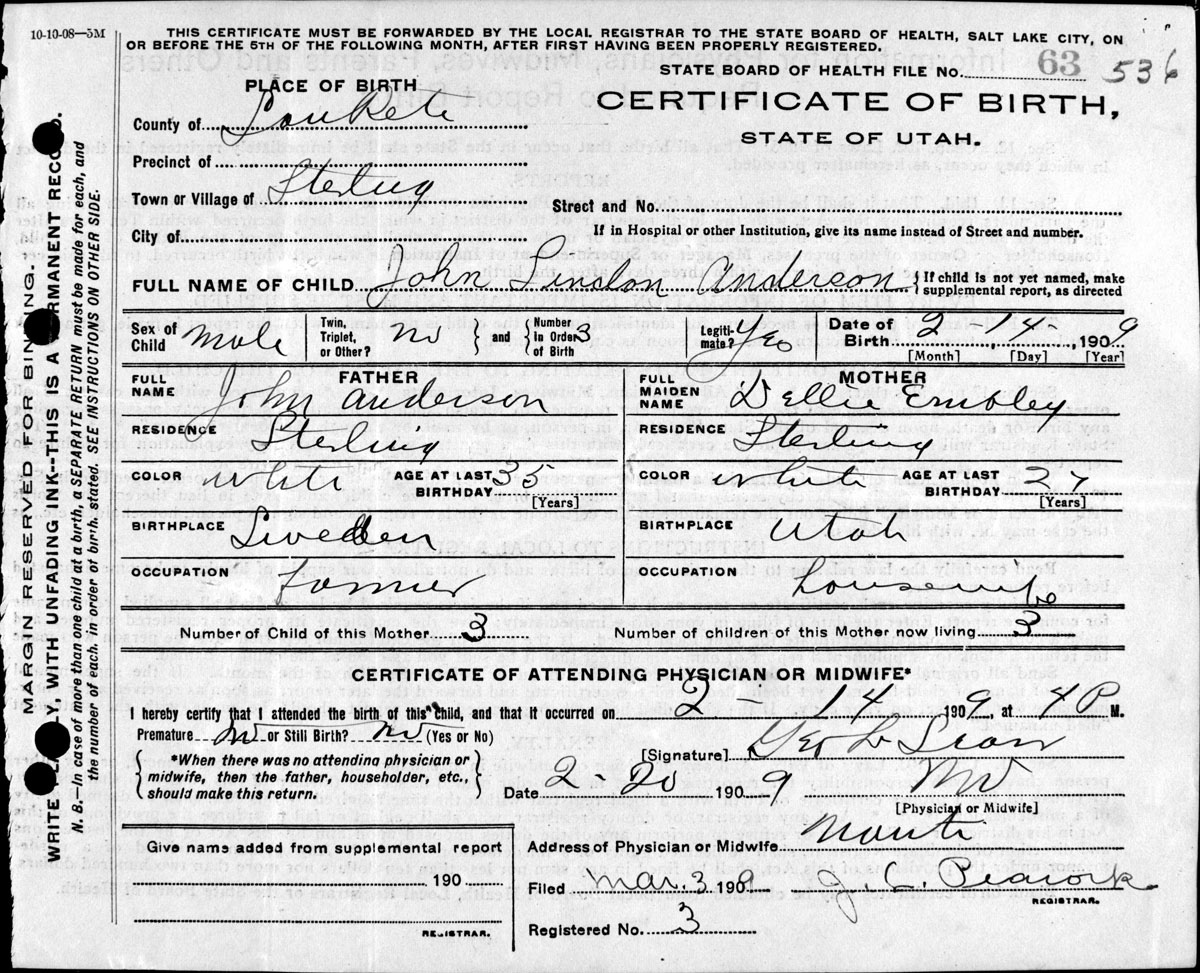 10-10-08—5M
THIS CERTIFICATE MUST BE FORWARDED BY THE LOCAL REGISTRAR TO THE STATE BOARD OF HEALTH, SALT LAKE CITY, ON
OR BEFORE THE 5TH OF THE FOLLOWING MONTH, AFTER FIRST HAVING BEEN PROPERLY REGISTERED.
STATE BOARD OF HEALTH FILE No. 63 536
PLACE OF BIRTH
CERTIFICATE OF BIRTH,
STATE OF UTAH.
County of
Precinct of
Town or Village of Sterling
Street and No.
City of
If in Hospital or other Institution, give its name instead of Street and number.
FULL NAME OF CHILD John Lindon Anderson { If child is not yet named, make
supplemental report, as directed
Sex of Child Male
Twin, Triplet, or Other? No
and { Number in Order of Birth 3
Legiti- mate? Yes
Date of Birth 2-14-, 1909
[Month] [Day] [Year]
FATHER
FULL NAME John Anderson
RESIDENCE Sterling
COLOR white AGE AT LAST BIRTHDAY 35
[Years]
BIRTHPLACE Sweden
OCCUPATION Farmer
MOTHER
FULL MAIDEN NAME Dellie Embley
RESIDENCE Sterling
COLOR white AGE AT LAST BIRTHDAY 27
[Years]
BIRTHPLACE Utah
OCCUPATION housewife
Number of Child of this Mother 3
Number of children of this Mother now living 3
CERTIFICATE OF ATTENDING PHYSICIAN OR MIDWIFE*
I hereby certify that I attended the birth of this child, and that it occurred on 2 14 1909, at 4 P M.
Premature No or Still Birth? No (Yes or No)
*When there was no attending physician or
midwife, then the father, householder, etc.,
should make this return.
[Signature] Geo L
Date 2-20 1909 MD
[Physician or Midwife]
Address of Physician or Midwife Manti
Give name added from supplemental report
190
REGISTRAR.
Filed Mar. 3 1909 J. C. Peacock
REGISTRAR.
Registered No. 3
MARGIN RESERVED FOR BINDING.
WRITE LY WITH UNFADING INK--THIS IS A RMANENT RECO D.
N. B.—In case of more than one child at a birth, a SEPARATE RETURN must be made for each, and
the number of each, in order of birth, stated. SEE INSTRUCTIONS ON OTHER SIDE.